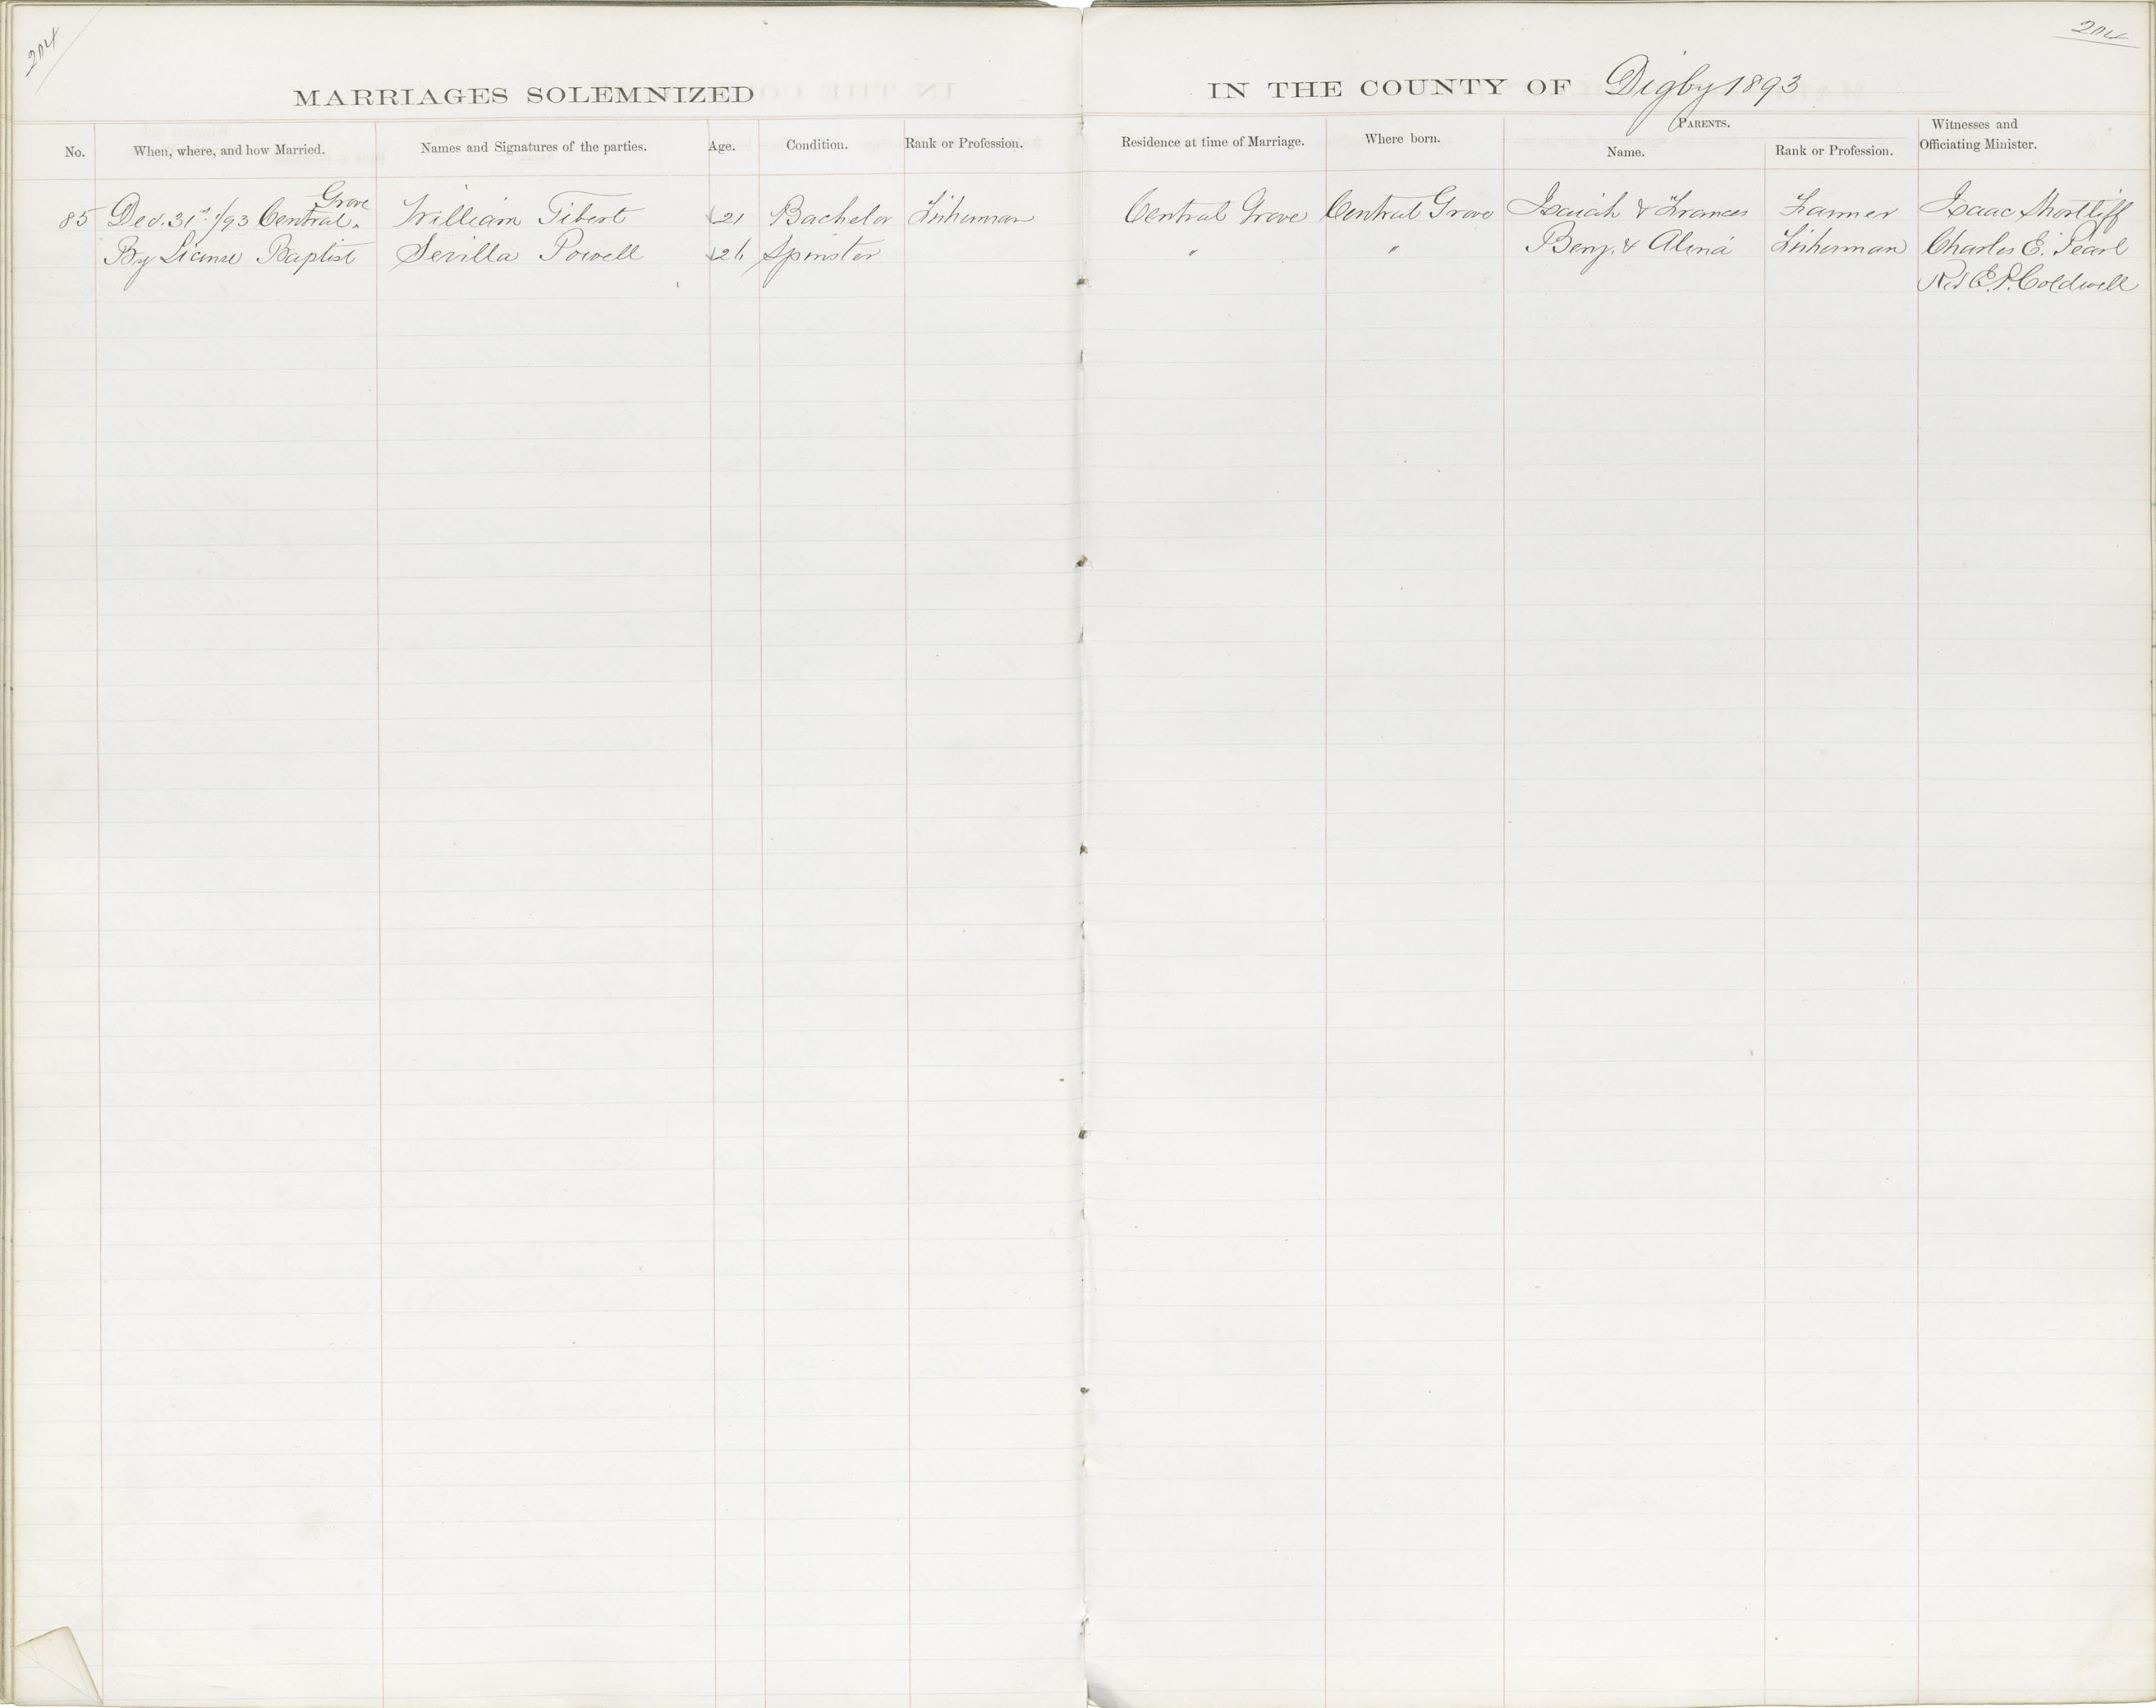 204
204
MARRIAGES SOLEMNIZED IN THE COUNTY OF Digby 1893
No. When, where, and how Married. Names and Signatures of the parties. Age. Condition. Rank or Profession. Residence at time of Marriage. Where born. PARENTS. Name. Rank or Profession. Witnesses and Officiating Minister.
Grove
85 Dec. 31st /93 Central William Tibert 21 Bachelor Fisherman Central Grove Central Grove Isaiah & Frances Farmer Isaac Shortliff
By License Baptist Sevilla Powell 26 Spinster " " Benj. & Alena Fisherman Charles E. Pearl
E. P. Coldwell